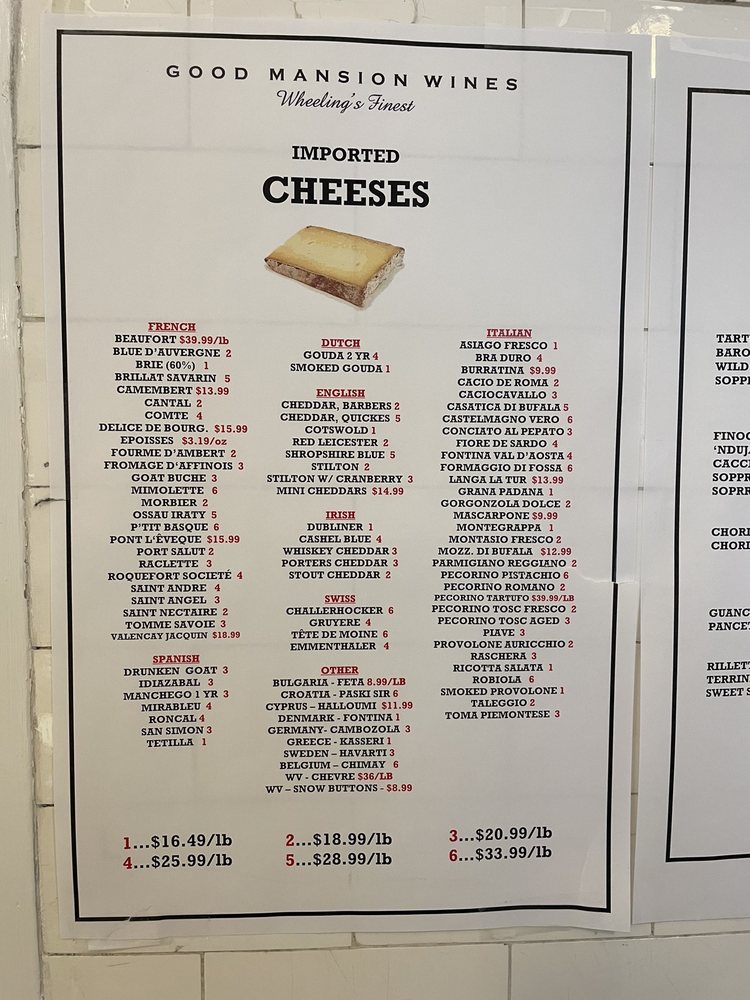 GOOD MANSION WINES
Wheeling's Finest
IMPORTED
CHEESES
FRENCH
BEAUFORT $39.99/lb
BLUE D'AUVERGNE 2
BRIE (60%) 1
BRILLAT SAVARIN 5
CAMEMBERT $13.99
CANTAL 2
COMTE 4
DELICE DE BOURG. $15.99
EPOISSES $3.19/oz
FOURME D'AMBERT 2
FROMAGE D'AFFINOIS 3
GOAT BUCHE 3
MIMOLETTE 6
MORBIER 2
OSSAU IRATY 5
P'TIT BASQUE 6
PONT L'ÊVEQUE $15.99
PORT SALUT 2
RACLETTE 3
ROQUEFORT SOCIETÉ 4
SAINT ANDRE 4
SAINT ANGEL 3
SAINT NECTAIRE 2
TOMME SAVOIE 3
VALENCAY JACQUIN $18.99
SPANISH
DRUNKEN GOAT 3
IDIAZABAL 3
MANCHEGO 1 YR 3
MIRABLEU 4
RONCAL 4
SAN SIMON 3
TETILLA 1
DUTCH
GOUDA 2 YR 4
SMOKED GOUDA 1
ENGLISH
CHEDDAR, BARBERS 2
CHEDDAR, QUICKES 5
COTSWOLD 1
RED LEICESTER 2
SHROPSHIRE BLUE 5
STILTON 2
STILTON W/ CRANBERRY 3
MINI CHEDDARS $14.99
IRISH
DUBLINER 1
CASHEL BLUE 4
WHISKEY CHEDDAR 3
PORTERS CHEDDAR 3
STOUT CHEDDAR 2
SWISS
CHALLERHOCKER 6
GRUYERE 4
TÊTE DE MOINE 6
EMMENTHALER 4
OTHER
BULGARIA - FETA 8.99/LB
CROATIA - PASKI SIR 6
CYPRUS – HALLOUMI $11.99
DENMARK - FONTINA 1
GERMANY- CAMBOZOLA 3
GREECE - KASSERI 1
SWEDEN – HAVARTI 3
BELGIUM – CHIMAY 6
WV - CHEVRE $36/LB
WV – SNOW BUTTONS - $8.99
ITALIAN
ASIAGO FRESCO 1
BRA DURO 4
BURRATINA $9.99
CACIO DE ROMA 2
CACIOCAVALLO 3
CASATICA DI BUFALA 5
CASTELMAGNO VERO 6
CONCIATO AL PEPATO 3
FIORE DE SARDO 4
FONTINA VAL D'AOSTA 4
FORMAGGIO DI FOSSA 6
LANGA LA TUR $13.99
GRANA PADANA 1
GORGONZOLA DOLCE 2
MASCARPONE $9.99
MONTEGRAPPA 1
MONTASIO FRESCO 2
MOZZ. DI BUFALA $12.99
PARMIGIANO REGGIANO 2
PECORINO PISTACHIO 6
PECORINO ROMANO 2
PECORINO TARTUFO $39.99/LB
PECORINO TOSC FRESCO 2
PECORINO TOSC AGED 3
PIAVE 3
PROVOLONE AURICCHIO 2
RASCHERA 3
RICOTTA SALATA 1
ROBIOLA 6
SMOKED PROVOLONE 1
TALEGGIO 2
TOMA PIEMONTESE 3
1...$16.49/lb 2...$18.99/lb 3...$20.99/lb
4...$25.99/lb 5...$28.99/lb 6...$33.99/lb
TART
BARO
WILD
SOPP
FINOC
'NDUJ
CACC
SOPPR
SOPRR
CHORI
CHORI
GUANC
PANCET
RILLET
TERRIN
SWEET S